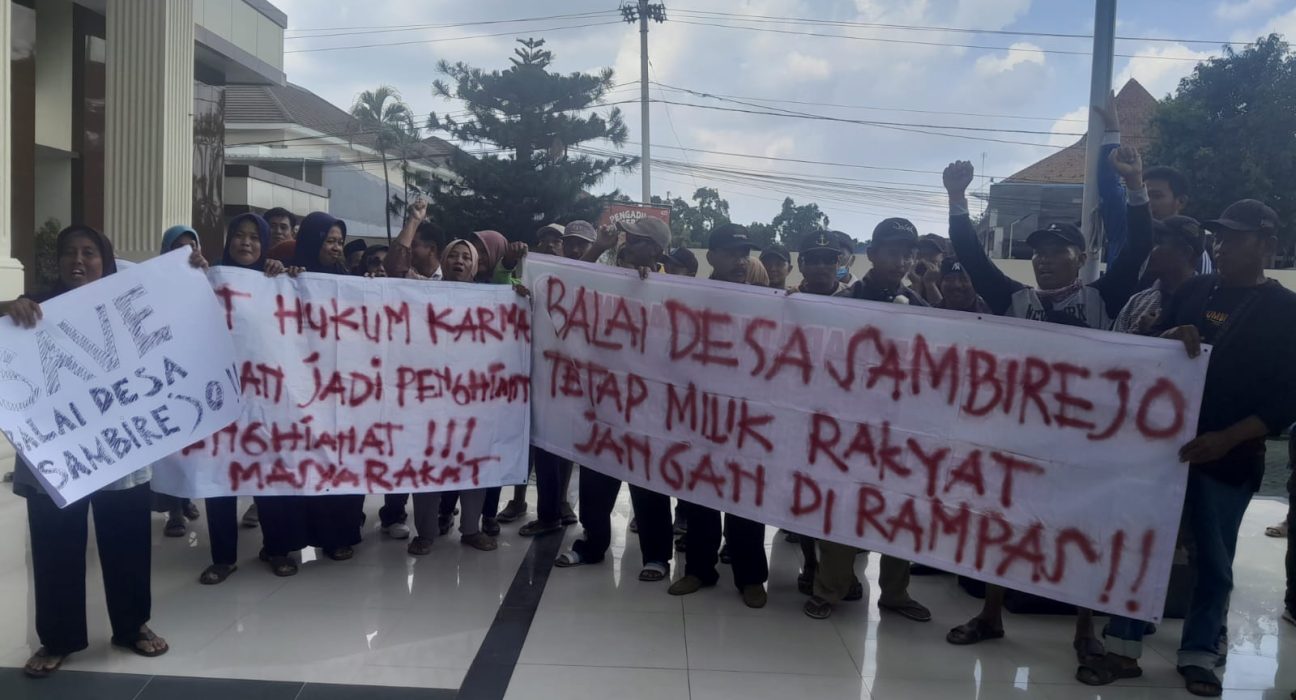 SAVE
BALAI DESA
SAMBIREJO
HUKUM KARMA
JADI PENGHIANAT
!!!
MASYARAKAT
BALAI DESA SAMBIREJO
TETAP MILIK RAKYAT
JANGAN DI RAMPAS!!